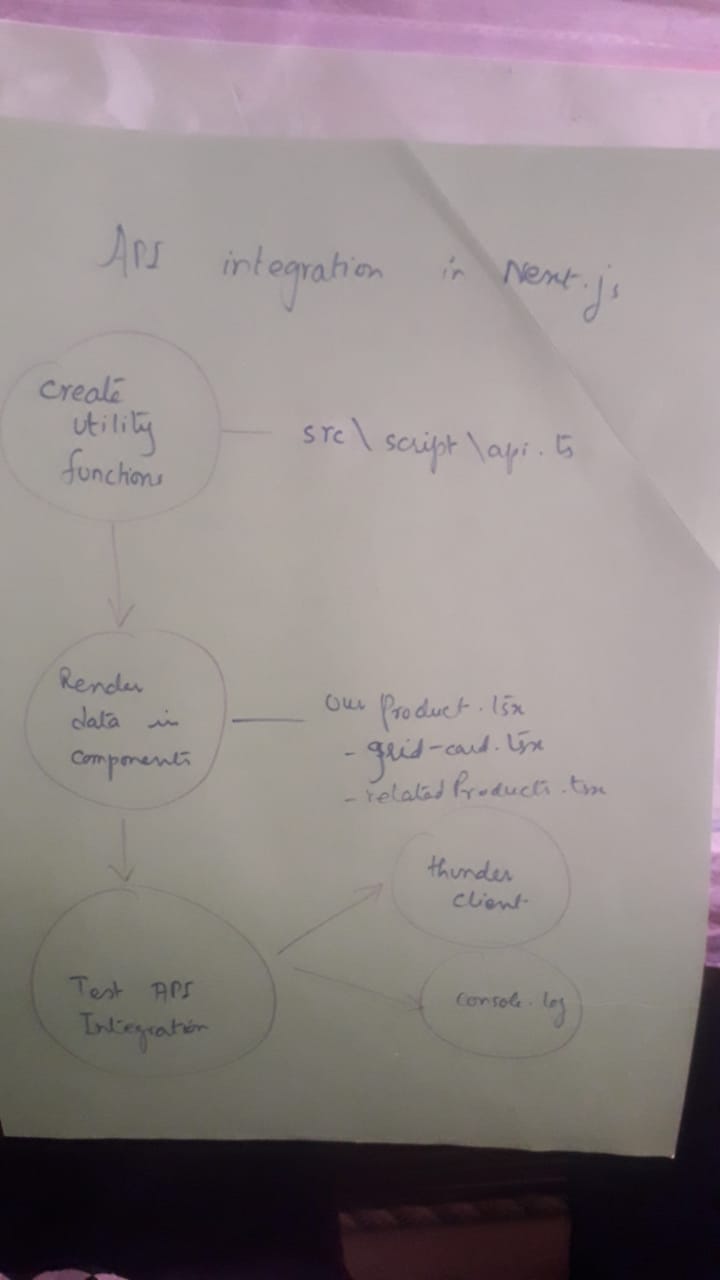 API integration in Next.js
Create
utility
functions
src\script\api.ts
Render
data in
components
Our Product.tsx
- grid-card.tsx
- related Products.tsx
thunder
client
Test API
Integration
console.log